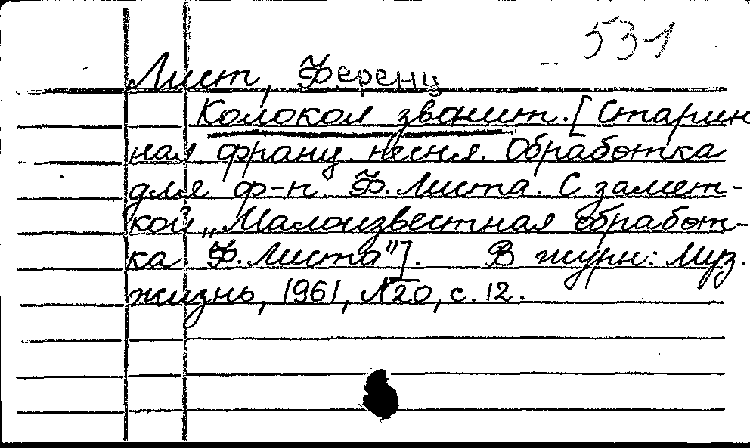 531
Лист, Ференц
Колокол звонит. [Старин
ная франц. песня. Обработка
для ф-п. Ф. Листа. С замет-
кой „Малоизвестная обработ-
ка Ф. Листа"]. В журн: Муз.
жизнь, 1961, №20, с. 12.